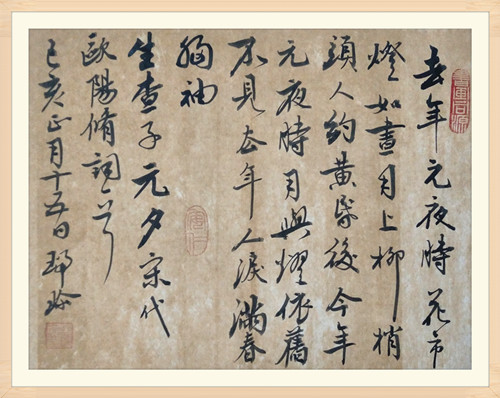 書畫同源
去年元夜時花市
燈如晝月上柳梢
頭人約黃昏後今年
元夜時月與燈依舊
不見去年人淚滿春
衫袖
生查子元夕宋代
歐陽脩詞一首
己亥正月十五日